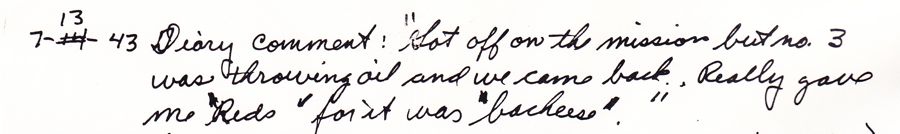 13
7-14-43 Diary comment: "Got off on the mission but no. 3
was throwing oil and we came back. Really gave
me "Reds" for it was "bacheese"."